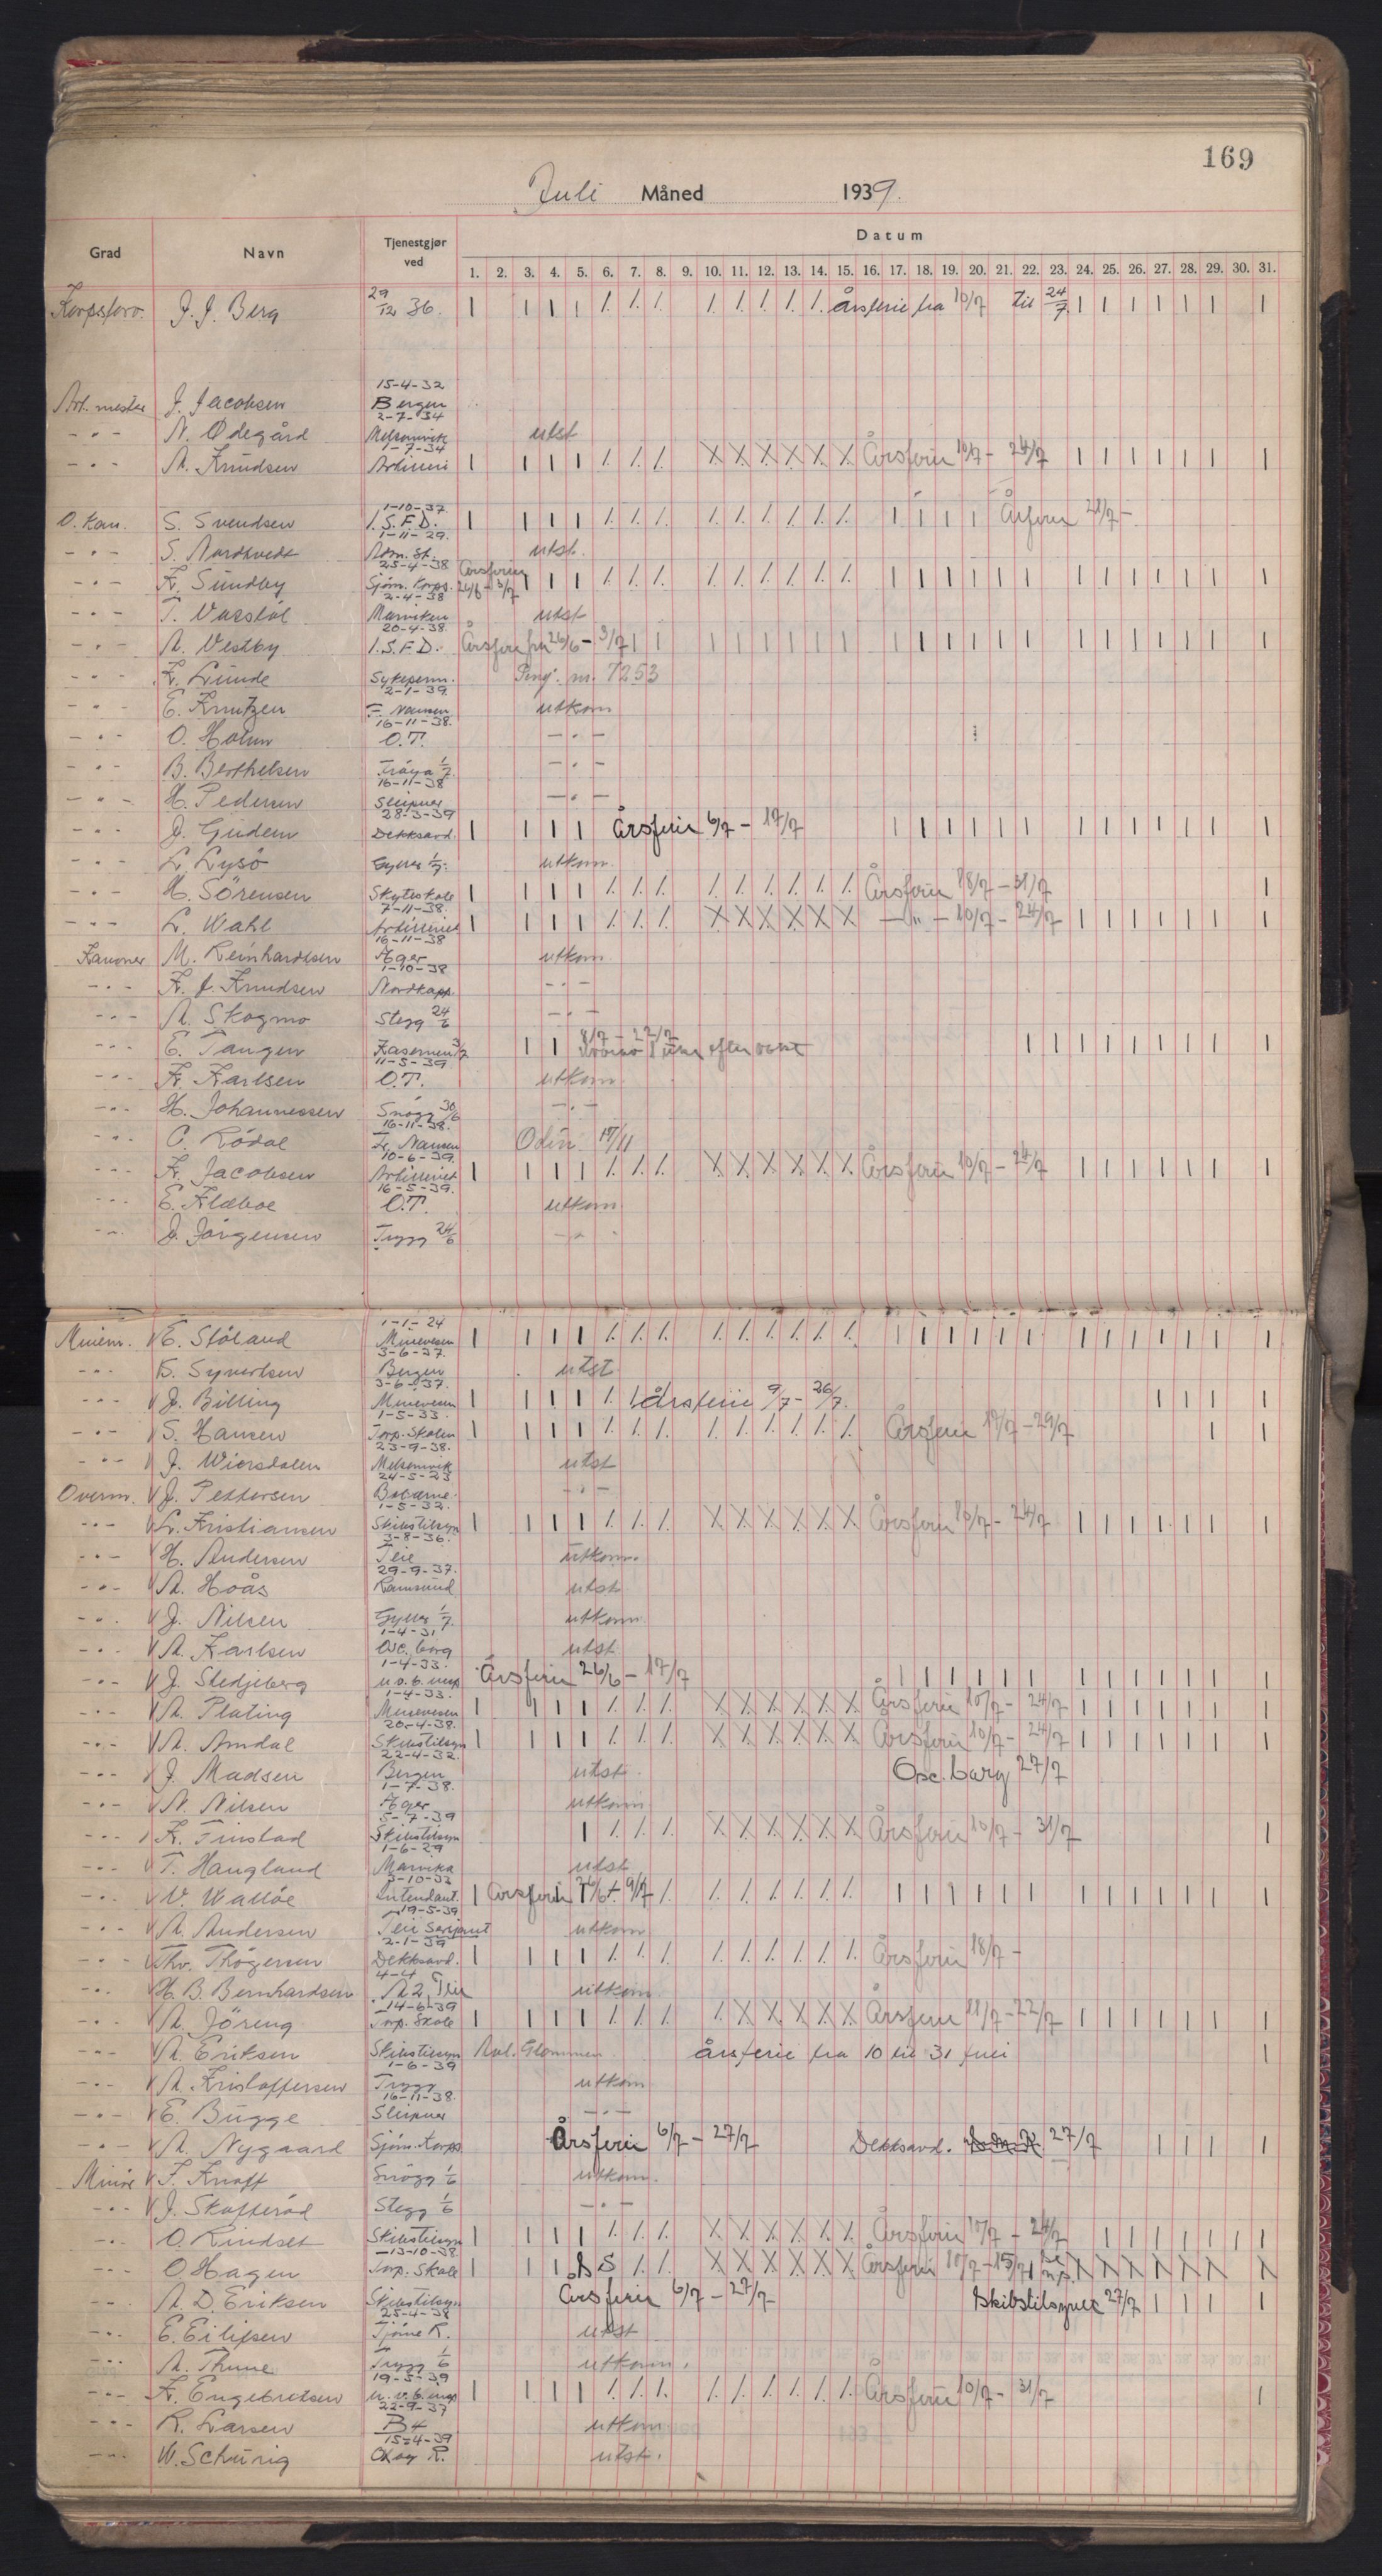 169
Juli Måned 1939.
Grad Navn Tjenestgjør ved Datum
1. 2. 3. 4. 5. 6. 7. 8. 9. 10. 11. 12. 13. 14. 15. 16. 17. 18. 19. 20. 21. 22. 23. 24. 25. 26. 27. 28. 29. 30. 31.
Korpsforv. J. J. Berg 29/12 36. Årsferie fra 10/7 til 24/7
15-4-32
Art. mester J. Jacobsen Bergen
2-7-34
-"- N. Ødegård Melsomvik utst
1-7-34
-"- A. Knudsen Artilleri Årsferie 10/7 - 24/7
1-10-37
O. Kan. S. Svendsen I.S.F.D. Årsferie 21/7 -
1-11-29.
-"- S. Nordtvedt Adm. St. utst.
25-4-38 Årsferie
-"- K. Sundby Sjøm. Korps. 26/6 - 3/7
2-4-38
-"- T. Varstöl Marviken utst
20-4-38.
-"- A. Vestby I.S.F.D. Årsferie fra 26/6 - 3/7
-"- K. Lunde Sykeperm. Penj. nr. 7253
2-1-39.
-"- E. Knutzen F. Nansen utkom
16-11-38.
-"- O. Holum O.T. -"-
-"- B. Berthelsen Fröya 1/7. -"-
16-11-38
-"- H. Pedersen Sleipner -"-
28-3-39
-"- J. Gudem Dekksavd. Årsferie 6/7 - 17/7
-"- L. Lysö Gyller 1/7. utkom.
-"- H. Sörensen Skyteskole Årsferie 18/7 - 31/7
7-11-38.
-"- L. Wahl Artilleriet -"- 10/7 - 24/7
16-11-38
Kanoner M. Reinhardtsen Æger utkom
1-10-38
-"- K. J. Knudsen Nordkapp. -"-
-"- A. Skogmo Stegg 24/6 -"-
8/7 - 22/7
-"- E. Tangen Kasernen 3/7
11-5-39
-"- K. Karlsen O.T. utkom
-"- H. Johannessen Snögg 30/6 -"-
16-11-38.
-"- C. Rödal Fr. Nansen Odin 17/11
10-6-39.
-"- K. Jacobsen Artilleriet Årsferie 10/7 - 24/7
16-5-39.
-"- E. Klæboe O.T. utkom
-"- J. Jörgensen Trygg 24/6 -"-
1-1-24
Minem. E. Stöland Minevesen
3-6-37.
-"- B. Syvertsen Bergen utst
3-6-37.
-"- J. Billing Minevesen Årsferie 9/7 - 26/7.
1-5-33.
-"- S. Hansen Torp. Skolen Årsferie 17/7 - 29/7
23-9-38.
-"- J. Wiersdalen Melsomvik utst
24-5-23
Overm. J. Pettersen Bolærne. -"-
1-5-32.
-"- L. Kristiansen Skibstilsyn Årsferie 10/7 - 24/7
3-8-36.
-"- H. Andersen Teie utkom.
29-9-37.
-"- A. Hoås Ramsund utst
-"- J. Nilsen Gyller 1/7. utkom.
1-4-31
-"- A. Karlsen Osc. borg utst
1-4-33.
-"- J. Stedjeberg u.v.b. insp Årsferie 26/6 - 17/7
1-4-33.
-"- A. Plating Minevesen Årsferie 10/7 - 24/7
20-4-38.
-"- A. Amdal Skibstilsyn Årsferie 10/7 - 24/7
22-4-32.
-"- J. Madsen Bergen utst. Osc. borg 27/7
1-7-38.
-"- N. Nilsen Æger utkom
5-7-39
-"- K. Tinstad Skibstilsyn Årsferie 10/7 - 31/7
1-6-29
-"- T. Haugland Marvika utst
3-10-33
-"- V. Wallöe Intendant. Årsferie 26/6 - 9/7
19-5-39
-"- A. Andersen Teie Serjeant utkom
2-1-39
-"- Thv. Thögersen Dekksavd. Årsferie 18/7 -
4-4
-"- H. B. Bernhardsen A 2, Teie utkom.
14-6-39
-"- A. Jöreng Torp. Skole Årsferie 11/7 - 22/7
-"- A. Eriksen Skibstilsyn Avl. Glommen årsferie fra 10 til 31 juli
1-6-39
-"- A. Kristoffersen Trygg utkom
16-11-38
-"- E. Bugge Sleipner -"-
-"- A. Nygaard Sjøm. Korps Årsferie 6/7 - 27/7 Dekksavd. 27/7
Minör F. Knoff Snögg 1/6 utkom.
-"- J. Skofteröd Stegg 1/6 -"-
-"- O. Rindset Skibstilsyn Årsferie 10/7 - 24/7
13-10-38
-"- O. Hagen Torp. Skole S S Årsferie 10/7 - 15/7
-"- A. D. Eriksen Skibstilsyn Årsferie 6/7 - 27/7 Skibstilsynet 27/7
25-4-38
-"- E. Eilifsen Tjöme R. utst
-"- A. Thune Trygg 1/6 utkom.
19-5-39
-"- K. Engebretsen u.v.b. insp Årsferie 10/7 - 31/7
22-9-37
-"- R. Larsen B 4 utkom
15-4-39
-"- W. Schürig Oksøy R. utst.